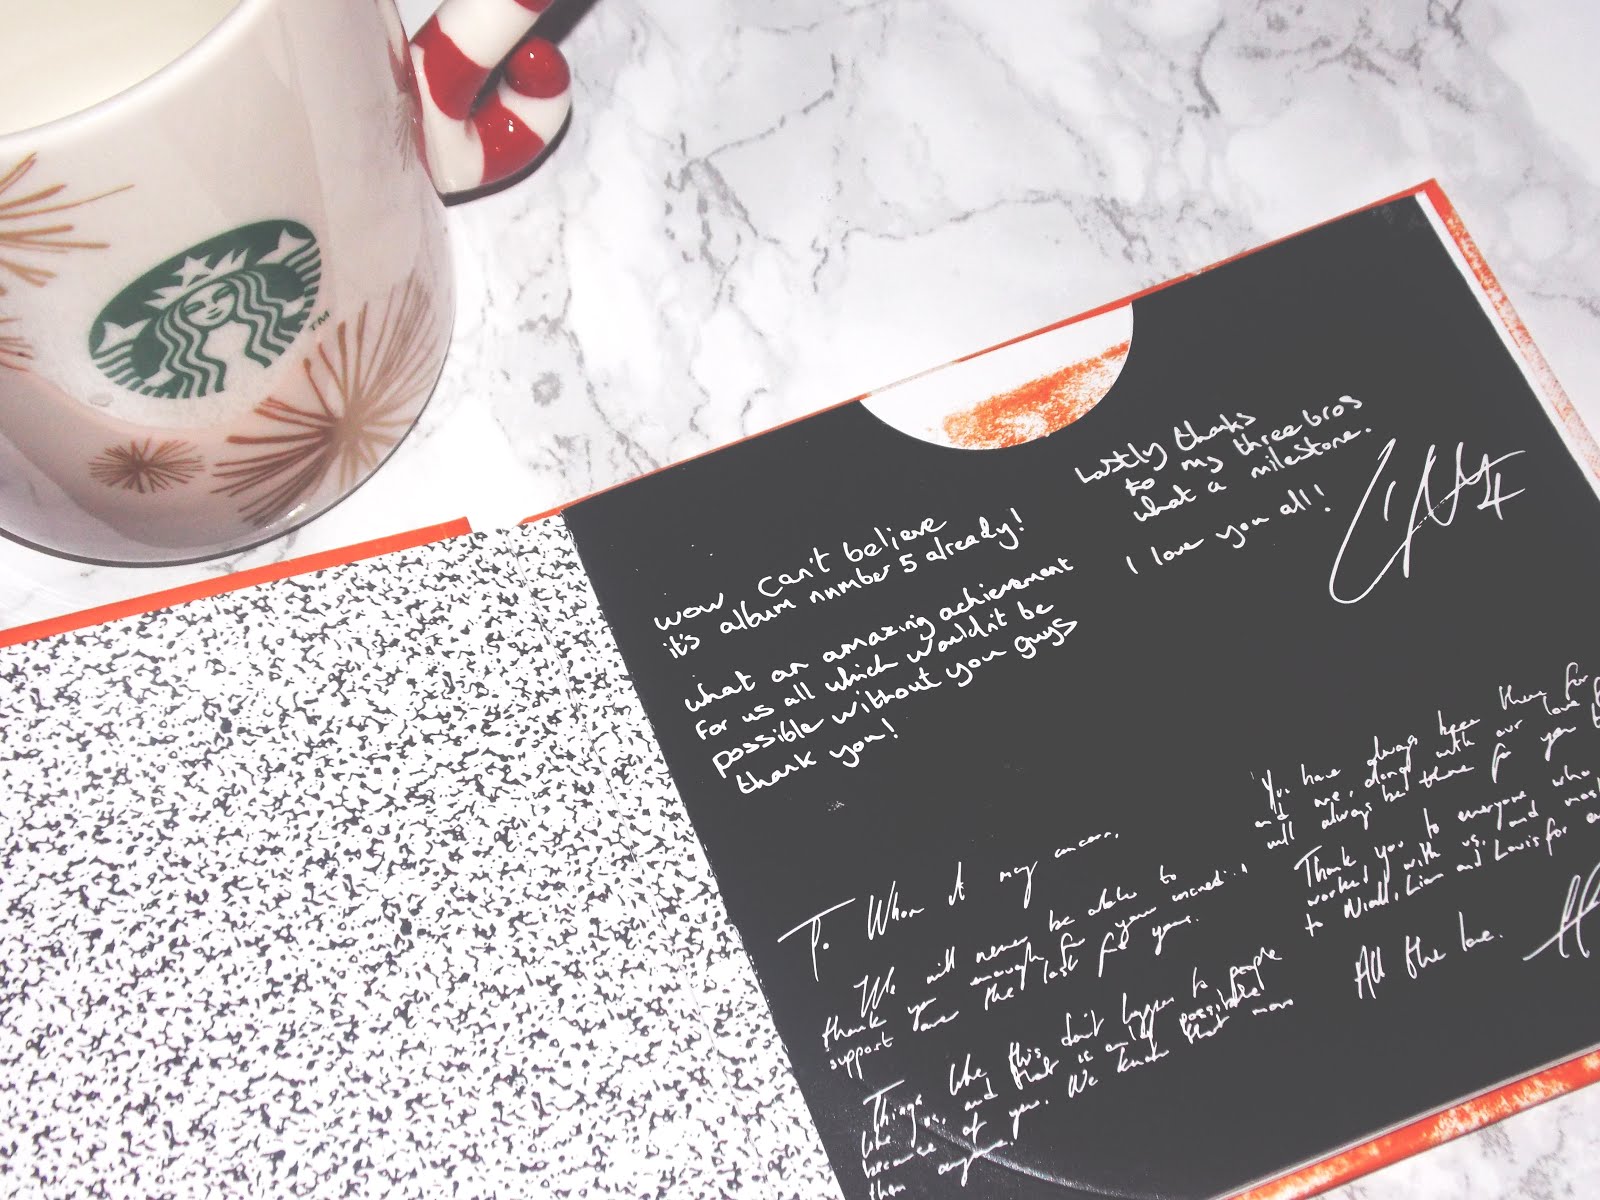 TM
wow can't believe
it's album number 5 already!
what an amazing achievement
for us all which wouldn't be
possible without you guys
thank you!
Lastly thanks
to my three bros
what a milestone.
I love you all!
To Whom it may concern,
We will never be able to
thank you enough for your
support over the last five years.
Things like this don't happen to people
like us, and that is only possible
because of you. We know that more
than anyone.
You have always been there for
and me, along with our love
will always be there for you
Thank you to everyone who
worked with us, and most
to Niall, Liam and Louis for
All the love.
H